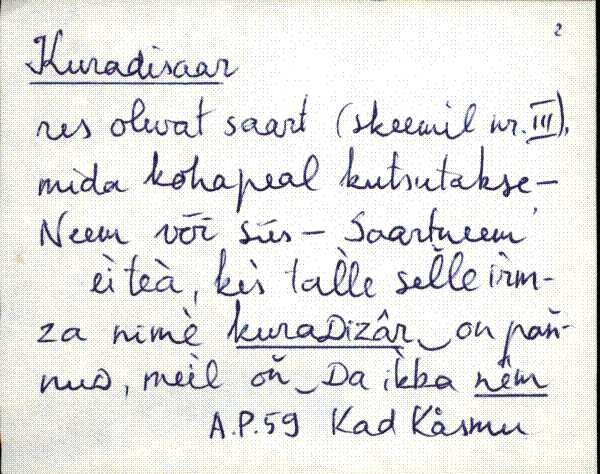 2
Kuradisaar
res olevat saart (skeemil nr. III),
mida kohapeal kutsutakse-
Neem või siis - Saartneem
èi teà, kès tal̀le sel̀le irm-
za nimè kuraDizâr‿on pań-
nuD, meìl oǹ‿Da ìkka nêm
A.P.59 Kad Käsmu